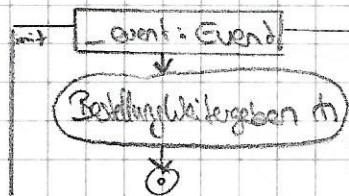 _event : Event
Bestellung Weitergeben